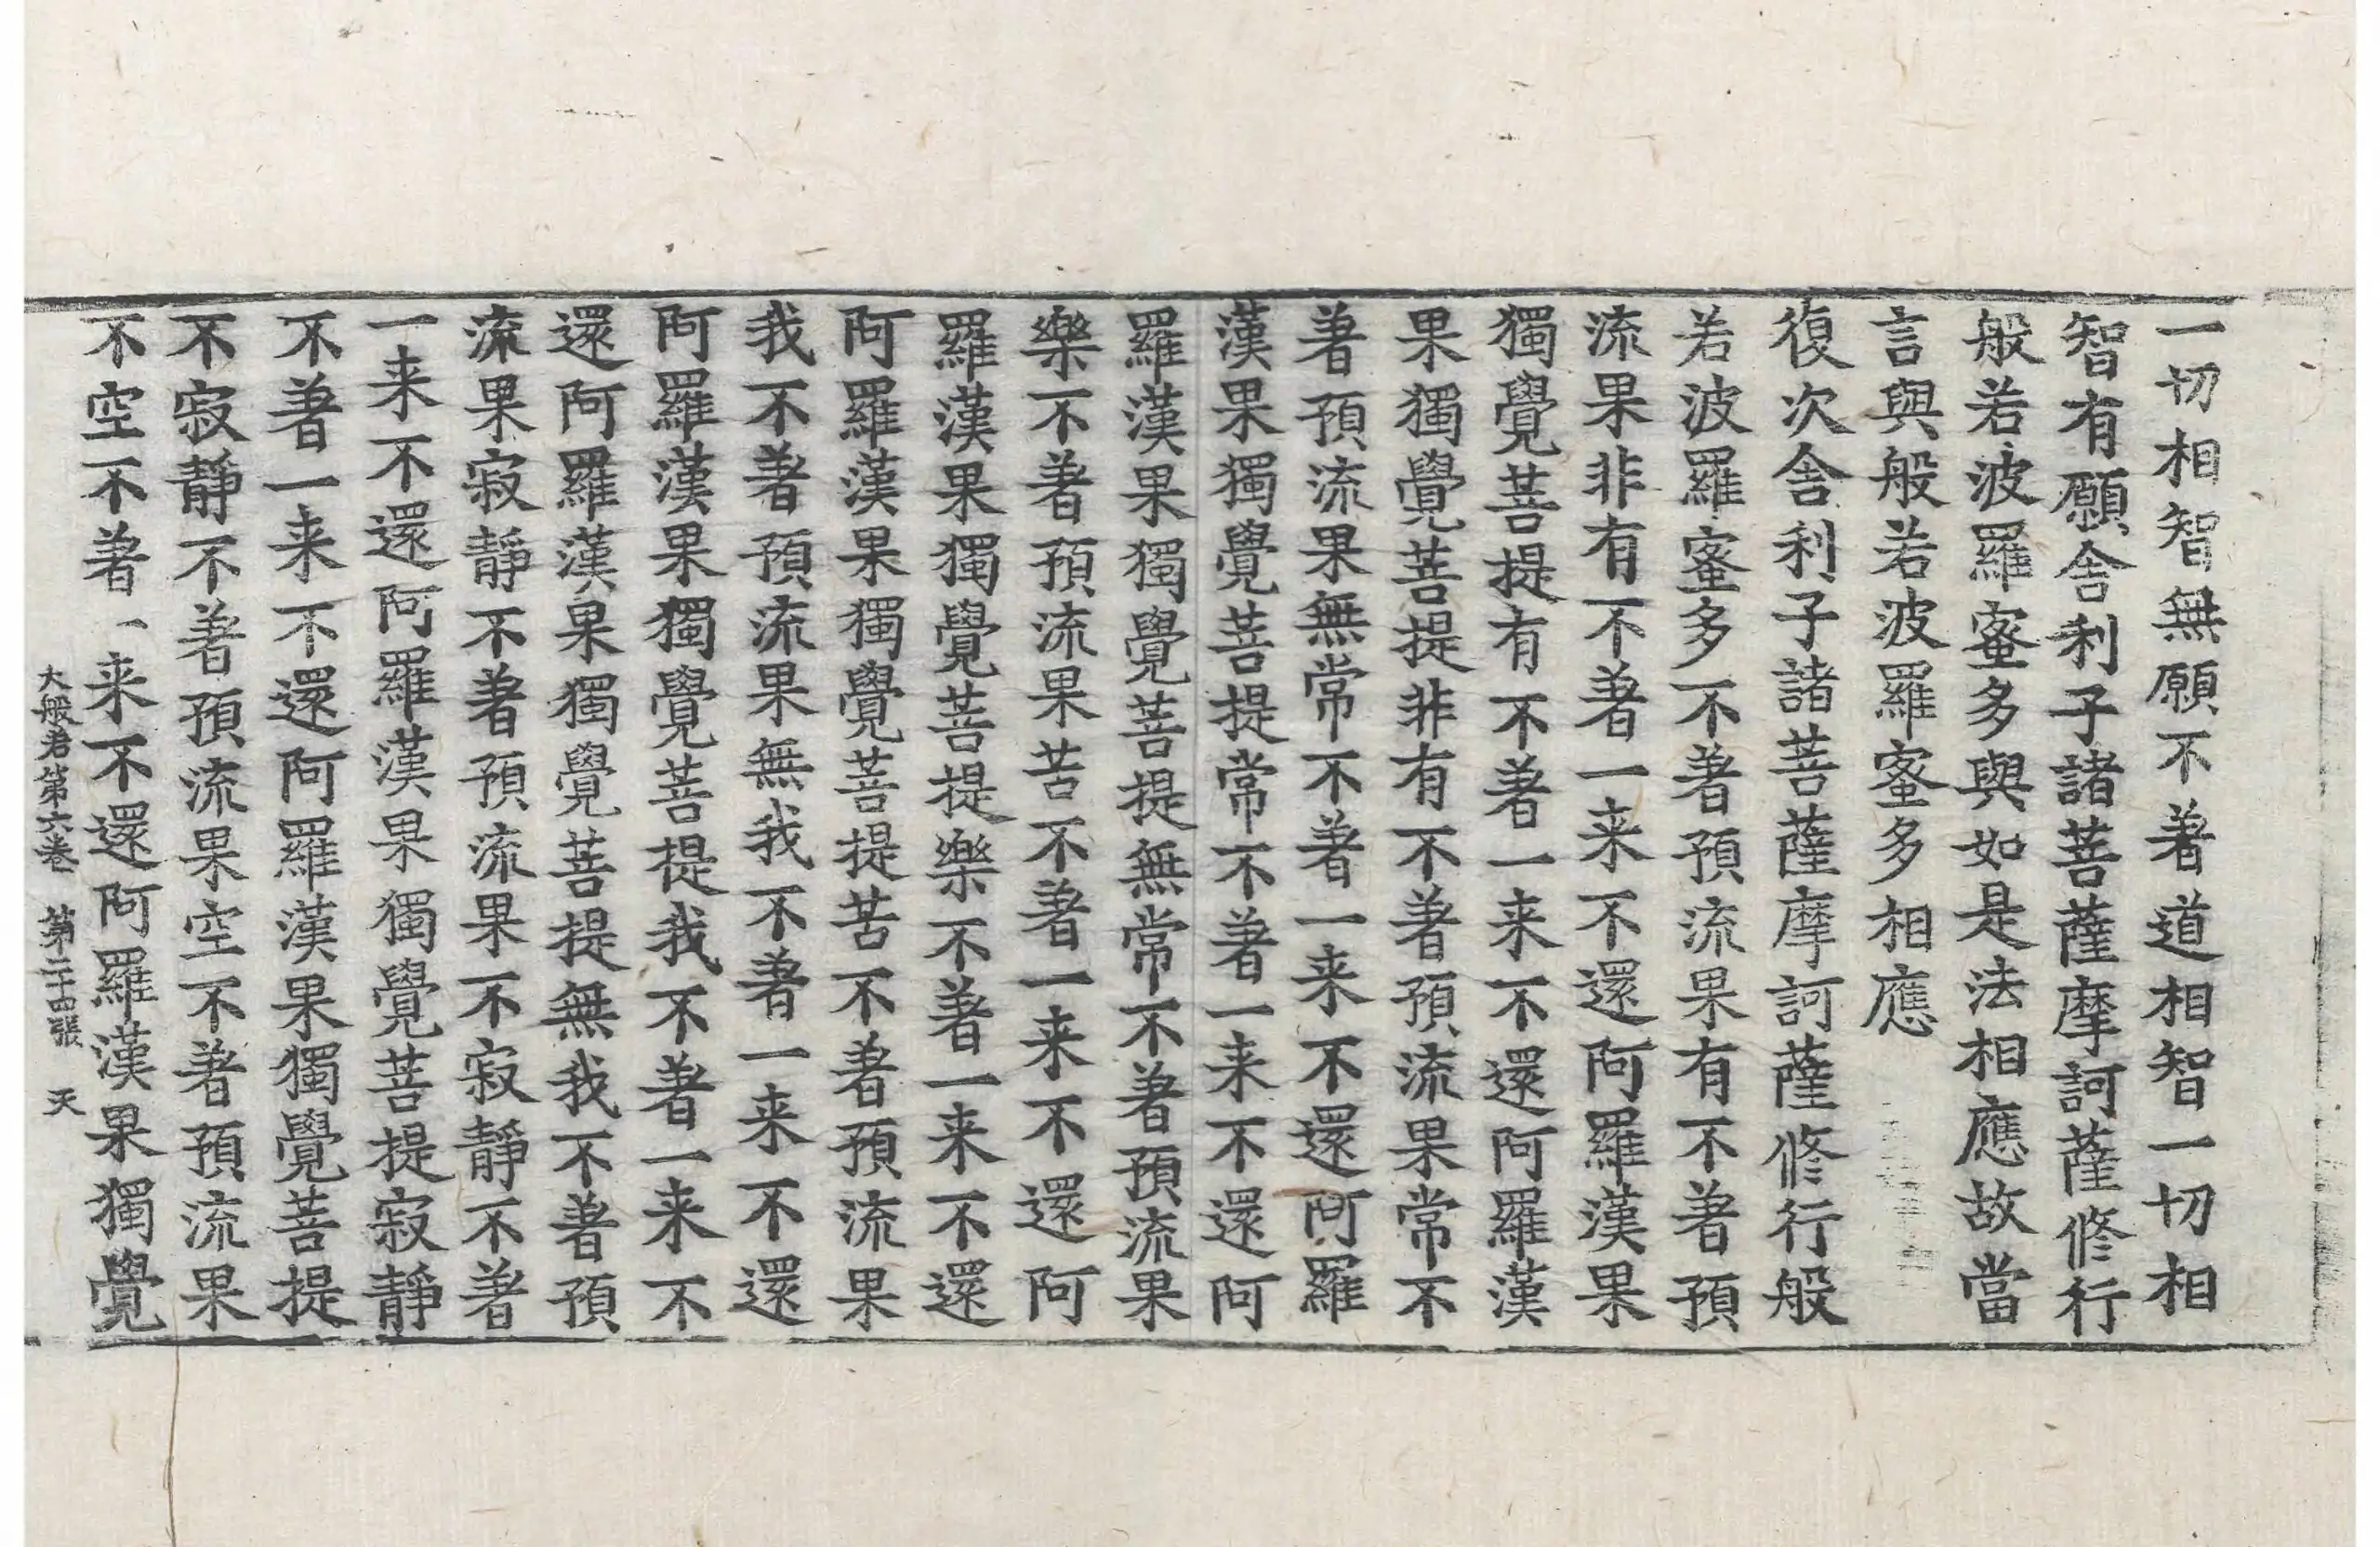 一切相智無願不著道相智一切相
智有願舍利子諸菩薩摩訶薩修行
般若波羅蜜多與如是法相應故當
言與般若波羅蜜多相應
復次舍利子諸菩薩摩訶薩修行般
若波羅蜜多不著預流果有不著預
流果非有不著一来不還阿羅漢果
獨覺菩提有不著一来不還阿羅漢
果獨覺菩提非有不著預流果常不
著預流果無常不著一来不還阿羅
漢果獨覺菩提常不著一来不還阿
羅漢果獨覺菩提無常不著預流果
樂不著預流果苦不著一来不還阿
羅漢果獨覺菩提樂不著一来不還
阿羅漢果獨覺菩提苦不著預流果
我不著預流果無我不著一来不還
阿羅漢果獨覺菩提我不著一来不
還阿羅漢果獨覺菩提無我不著預
流果寂靜不著預流果不寂靜不著
一来不還阿羅漢果獨覺菩提寂靜
不著一来不還阿羅漢果獨覺菩提
不寂靜不著預流果空不著預流果
不空不著一来不還阿羅漢果獨覺
大般若第六卷 第二十四張 天